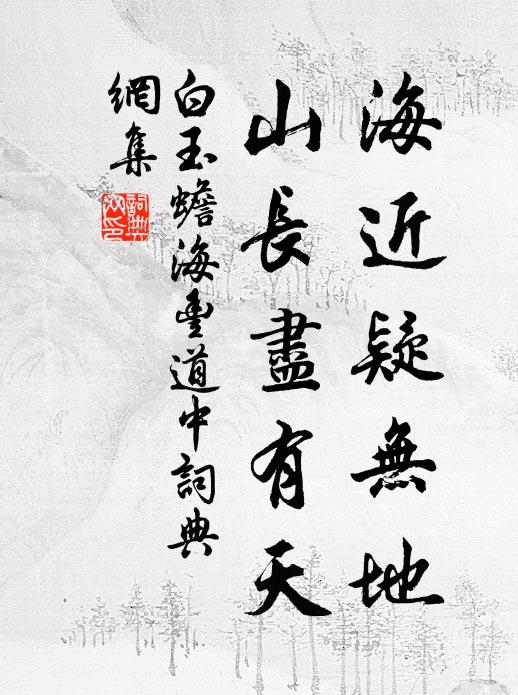 海近疑無地
山長盡有天
白玉蟾海豐道中詞典
網集
詞典
網印